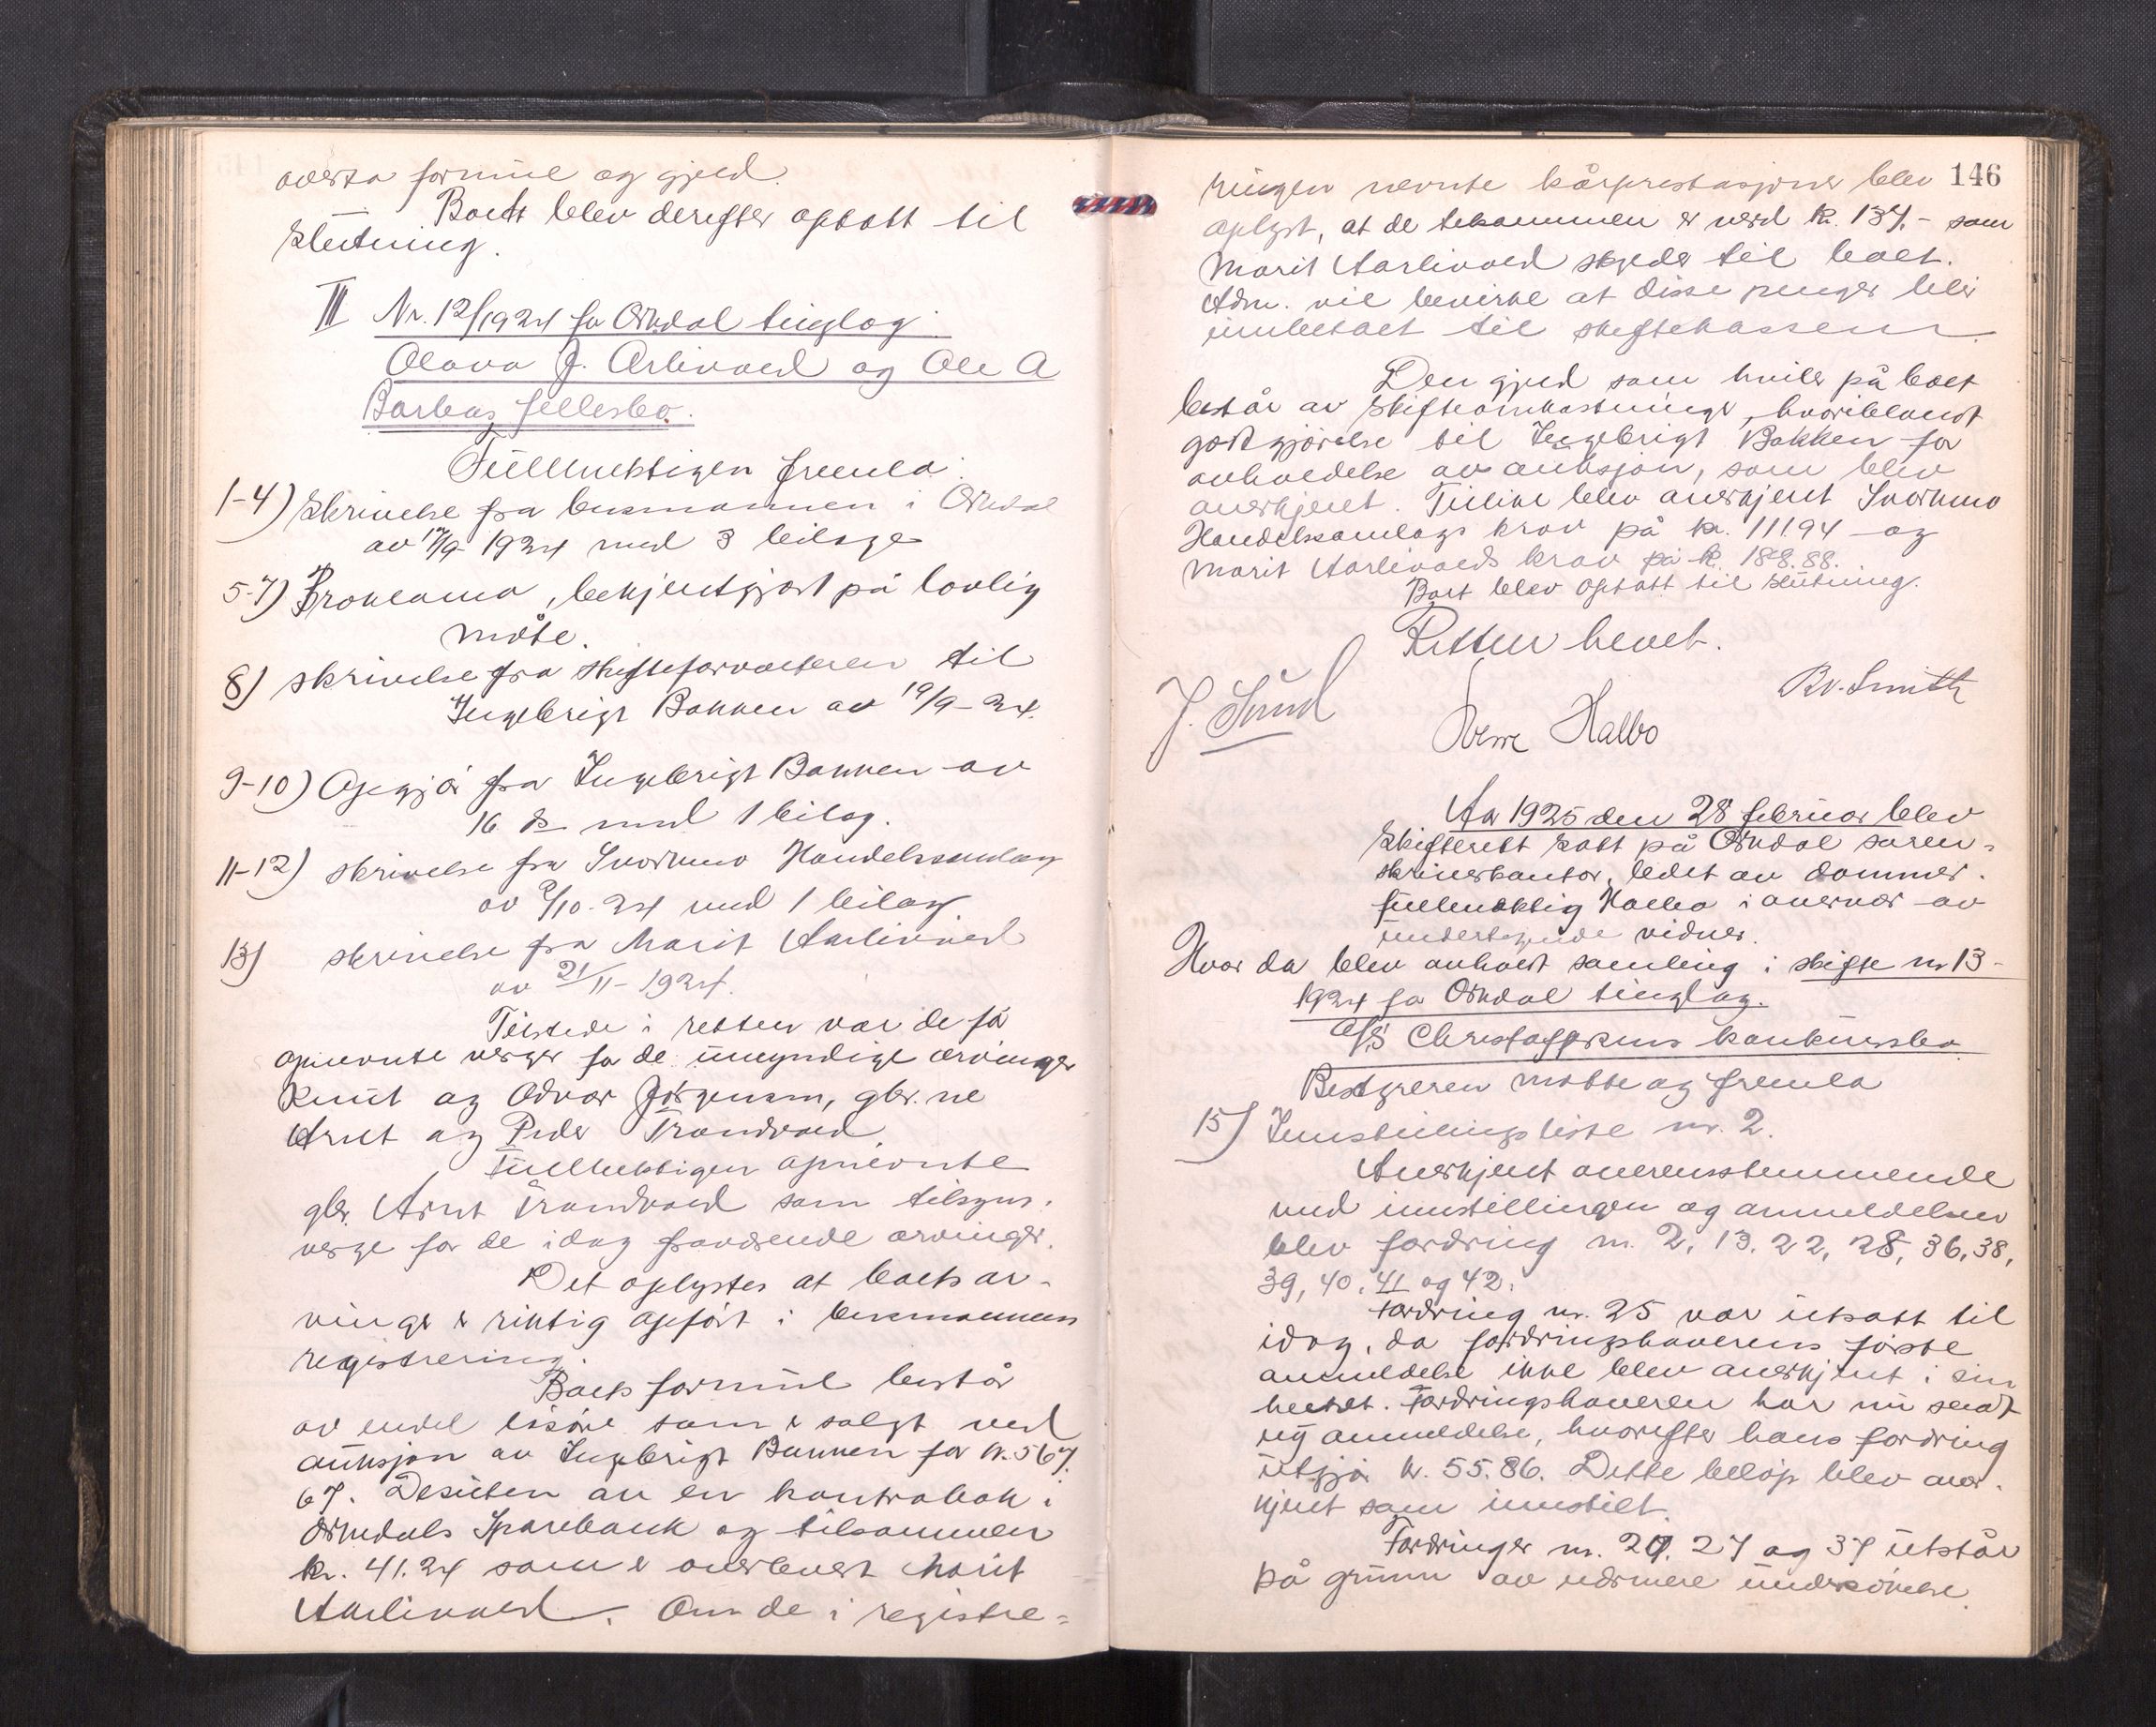 overta formue og gjeld.
Boet blev derefter optatt til
slutning.
III Nr. 12/1924 for Orkdal tinglag.
Olava J. Arlivold og Ole A
Barbos fellesbo.
Fullmektigen fremla:
1-4) Skrivelse fra lensmannen i Orkdal
av 17/9-1924 med 3 bilage
5-7) Proklama, bekjentgjort på lovlig
måte.
8) skrivelse fra skifteforvalteren til
Ingebrigt Bakken av 19/9-24.
9-10) Opgjør fra Ingebrigt Bakken av
16 ds med 1 bilag.
11-12) skrivelse fra Svorkmo Handelssamlag
av 2/10-24 med 1 bilag.
13) skrivelse fra Marit Aarlivold
av 21/11-1924.
Tilstede i retten var de få
opnevnte verger for de umyndige arvinger
Knut og Odvar Jørgensen, gbr.ne
Arnt og Peder Trondvold.
Fullmektigen opnevnte
gbr. Arnt Trondvold som tilsyns-
verge for de idag fraværende arvinger.
Det oplystes at boets ar-
vinger er riktig opført i lensmannens
registrering.
Boets formue består
av endel løsøre som er solgt ved
auksjon av Ingebrigt Bakken for kr. 567.
67. Desuten av en kontrabok i
Orkdals Sparebank og tilsammen
kr. 41.24 som er overlevert Marit
Aarlivold. Om de i registre=
146
ringen nevnte kårprestasjoner blev
oplyst, at de tilsammen er verd kr. 137.- som
Marit Aarlivold skylder til boet.
Adm. vil bevirke at disse penger blir
innbetalt til skiftekassen.
Den gjeld som hviler på boet
består av skifteomkostninger, hvoriblandt
godtgjørelse til Ingebrigt Bakken for
avholdelse av auksjon, som blev
anerkjent. Tillike blev anerkjent Svorkmo
Handelssamlags krav på kr. 111.94 og
Marit Aarlivolds krav på kr. 188.88.
Boet blev optatt til slutning.
Retten hevet.
J. Sund
Br. Smith
Sverre Halbo
Aar 1925 den 28 februar blev
skifterett satt på Orkdal soren-
skriverkontor, ledet av dommer-
fullmektig Halbo i nærvær av
undertegnede vidner.
Hvor da blev avholdt samling i skifte nr 13-
1924 for Orkdal tinglag.
A/S Christoffersens konkursbo
Bestyreren møtte og fremla
15) Innstillingsliste nr. 2.
Anerkjent overensstemmende
med innstillingen og anmeldelsen
blev fordring nr. 2, 13, 22, 28, 36, 38,
39, 40, 41 og 42.
Fordring nr. 25 var utsatt til
idag, da fordringshaverens første
anmeldelse ikke blev anerkjent i sin
helhet. Fordringshaveren har nu sendt
ny anmeldelse, hvorefter hans fordring
utgjør kr. 55.86. Dette beløp blev aner-
kjent som innstilt.
Fordringer nr. 20, 27 og 37 utstår
på grunn av nærmere undersøkelse.